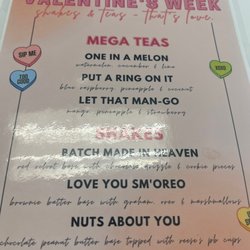 VALENTINE'S WEEK
shakes & teas - that's love.
MEGA TEAS
SIP ME
ONE IN A MELON
watermelon, cucumber & lime
XOXO
TOO COOL
PUT A RING ON IT
blue raspberry, pineapple & coconut
LET THAT MAN-GO
mango, pineapple & strawberry
SHAKES
BATCH MADE IN HEAVEN
red velvet base with cheesecake drizzle & cookie pieces
LOVE YOU SM'OREO
brownie batter base with graham, oreo & marshmallows
NUTS ABOUT YOU
chocolate peanut butter base topped with reese's pb cups